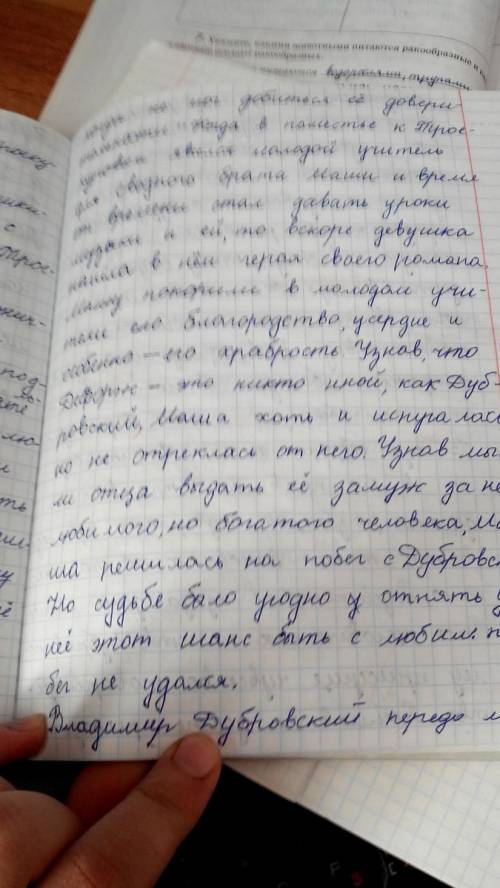 5. Укажите, какими животными питаются ракообразные и
водорослями, трупами
не мог добиться её довери
Когда в поместье к Трое-
курову явился молодой учитель
для сводного брата Маши и время
от времени стал давать уроки
музыки и ей, то вскоре девушка
нашла в нём героя своего романа.
Машу покорили в молодом учи-
теле его благородство, усердие и
особенно - его храбрость. Узнав, что
Дефорж - это никто иной, как Дуб-
ровский, Маша хоть и испугалась
но не отреклась от него. Узнав мыс
ли отца выдать её замуж за не
любимого, но богатого человека, Ма
ша решилась на побег с Дубровс
Но судьбе было угодно у отнять у
неё этот шанс быть с любим. п
бег не удался.
Владимир Дубровский передо м